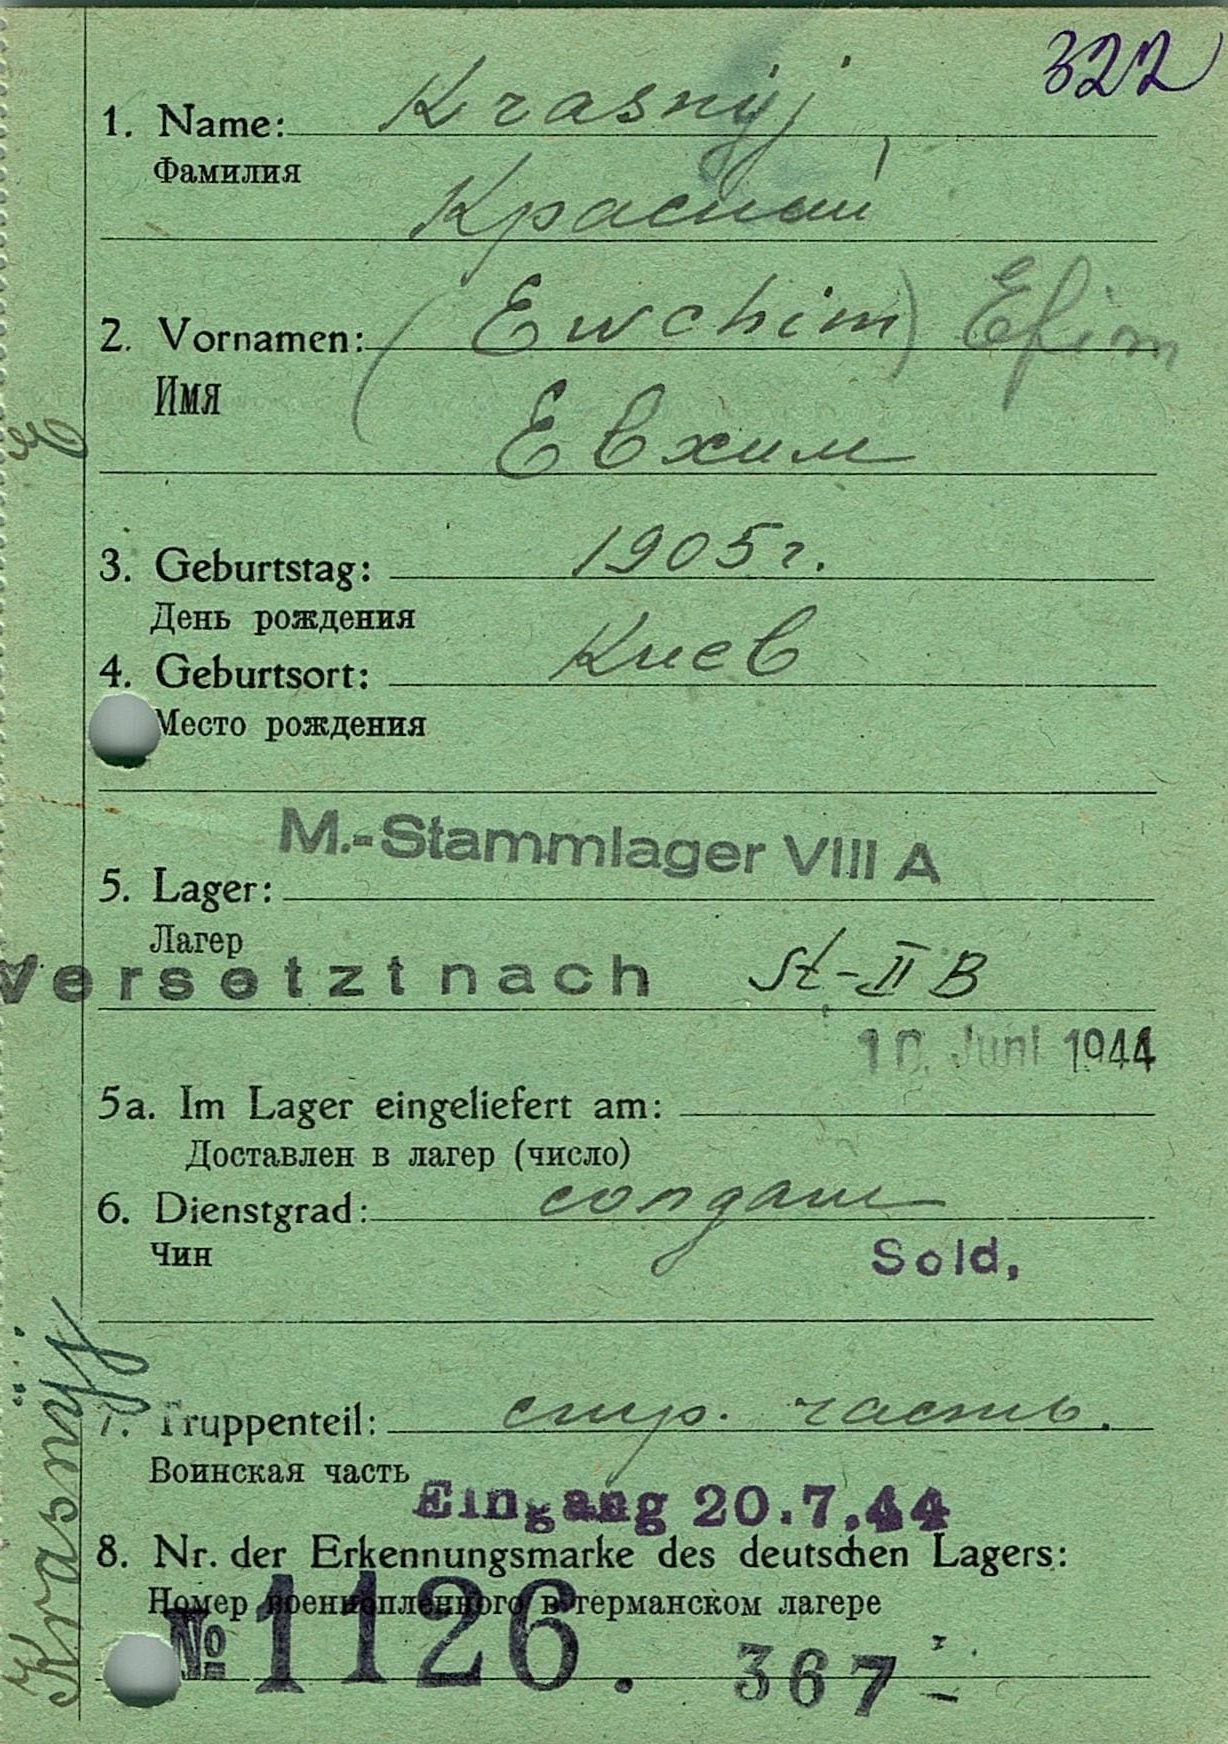 322
1. Name: Krasnÿj,
Фамилия
Красный
2. Vornamen: (Ewchim) Efim
Имя
Евхим
3. Geburtstag: 1905 г.
День рождения
4. Geburtsort: Киев
Место рождения
M.-Stammlager VIII A
5. Lager:
Лагер
Versetzt nach St-II B
10. Juni 1944
5a. Im Lager eingeliefert am:
Доставлен в лагер (число)
6. Dienstgrad: солдат
Чин
Sold,
7. Truppenteil: стр. часть.
Воинская часть
Eingang 20.7.44
8. Nr. der Erkennungsmarke des deutschen Lagers:
Номер военнопленного в германском лагере
№ 1126. 367
Krasnÿj